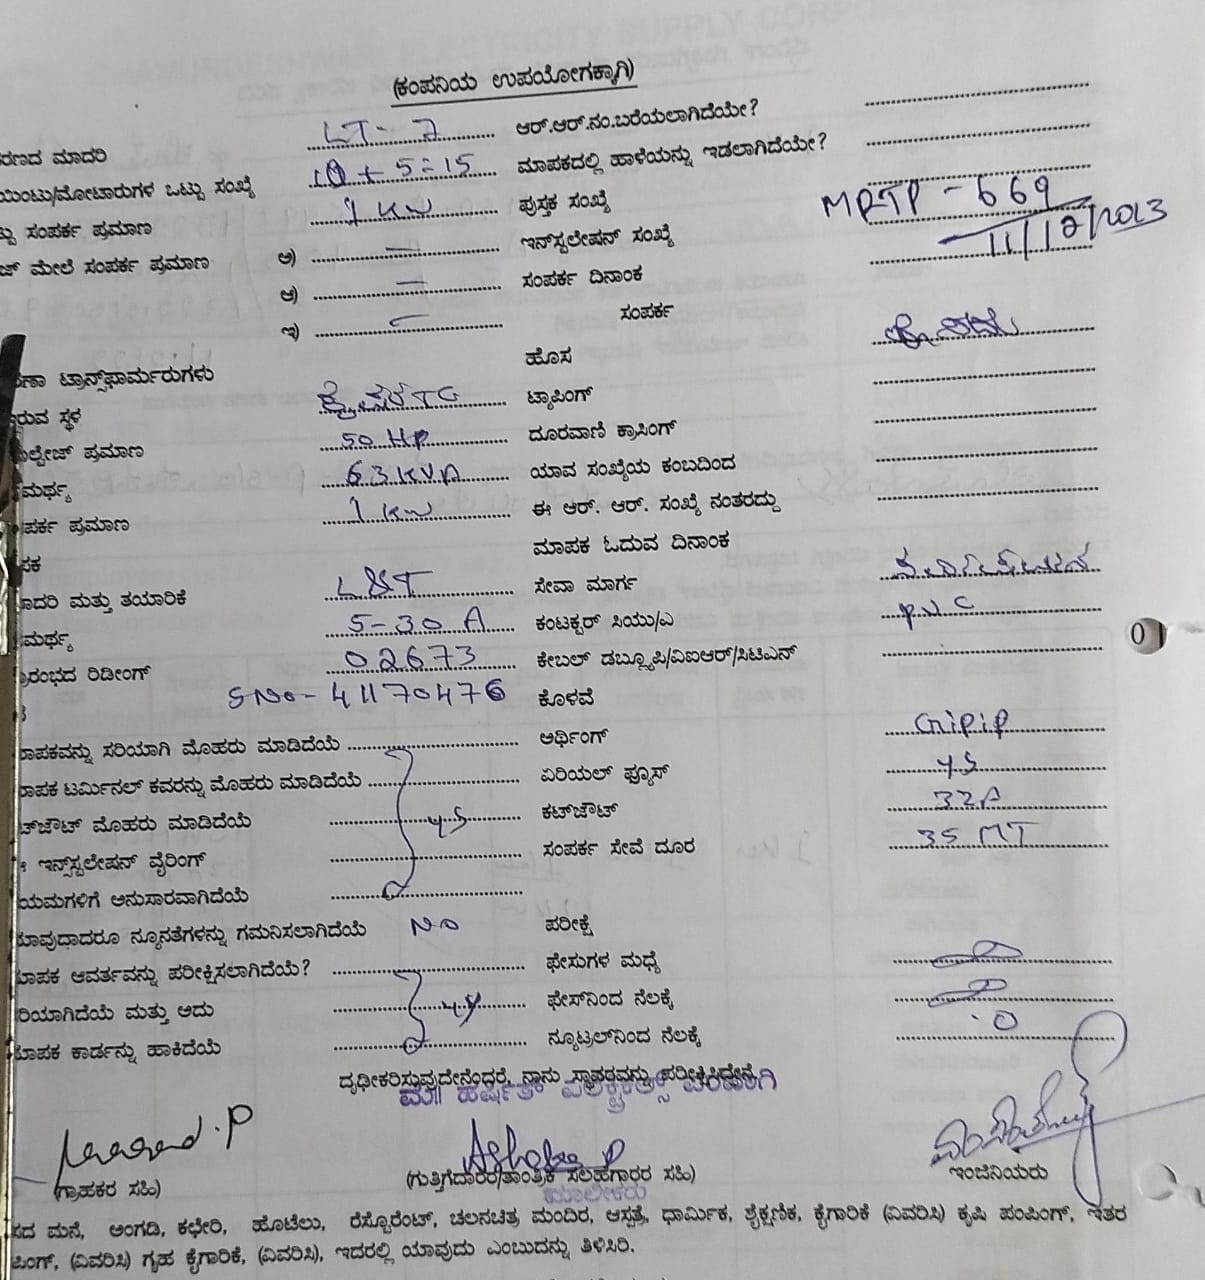 (ಕಂಪನಿಯ ಉಪಯೋಗಕ್ಕಾಗಿ)
ರಣದ ಮಾದರಿ LT- 7 ಆರ್.ಆರ್.ನಂ.ಬರೆಯಲಾಗಿದೆಯೇ?
ಯಿಂಟು/ಮೋಟಾರುಗಳ ಒಟ್ಟು ಸಂಖ್ಯೆ 10 + 5 = 15 ಮಾಪಕದಲ್ಲಿ ಹಾಳೆಯನ್ನು ಇಡಲಾಗಿದೆಯೇ?
ಟ್ಟು ಸಂಪರ್ಕ ಪ್ರಮಾಣ 1 KW ಪುಸ್ತಕ ಸಂಖ್ಯೆ
ಜ್ ಮೇಲೆ ಸಂಪರ್ಕ ಪ್ರಮಾಣ ಅ) – ಇನ್‌ಸ್ಟಲೇಷನ್ ಸಂಖ್ಯೆ MRTP - 669
ಆ) – ಸಂಪರ್ಕ ದಿನಾಂಕ 11/12/2013
ಇ) – ಸಂಪರ್ಕ
ಟ್ರಾನ್ಸ್‌ಫಾರ್ಮರುಗಳು ಹೊಸ
ರುವ ಸ್ಥಳ TC ಟ್ಯಾಪಿಂಗ್
ಲ್ಟೇಜ್ ಪ್ರಮಾಣ 50 HP ದೂರವಾಣಿ ಕ್ರಾಸಿಂಗ್
ಮರ್ಥ್ಯ 63 KVA ಯಾವ ಸಂಖ್ಯೆಯ ಕಂಬದಿಂದ
ಪರ್ಕ ಪ್ರಮಾಣ 1 KW ಈ ಆರ್. ಆರ್. ಸಂಖ್ಯೆ ನಂತರದ್ದು
ಪಕ ಮಾಪಕ ಓದುವ ದಿನಾಂಕ
ಾದರಿ ಮತ್ತು ತಯಾರಿಕೆ L&T ಸೇವಾ ಮಾರ್ಗ
ಮರ್ಥ್ಯ 5-30 A ಕಂಟಕ್ಟರ್ ಸಿಯು/ಎ PVC
ರಂಭದ ರಿಡೀಂಗ್ 02673 ಕೇಬಲ್ ಡಬ್ಲ್ಯೂಪಿ/ವಿಐಆರ್/ಸಿಟಿಎಸ್
SNo- 41170476 ಕೊಳವೆ
ಾಪಕವನ್ನು ಸರಿಯಾಗಿ ಮೊಹರು ಮಾಡಿದೆಯೆ ಅರ್ಥಿಂಗ್ GiPiP
ಾಪಕ ಟರ್ಮಿನಲ್ ಕವರನ್ನು ಮೊಹರು ಮಾಡಿದೆಯೆ ಏರಿಯಲ್ ಫ್ಯೂಸ್ yS
ಟ್‌ಔಟ್ ಮೊಹರು ಮಾಡಿದೆಯೆ yS ಕಟ್‌ಔಟ್ 32A
ಇನ್‌ಸ್ಟಲೇಷನ್ ವೈರಿಂಗ್ ಸಂಪರ್ಕ ಸೇವೆ ದೂರ 35 MT
ಯಮಗಳಿಗೆ ಅನುಸಾರವಾಗಿದೆಯೆ
ಾವುದಾದರೂ ನ್ಯೂನತೆಗಳನ್ನು ಗಮನಿಸಲಾಗಿದೆಯೆ NO ಪರೀಕ್ಷೆ
ಾಪಕ ಆವರ್ತವನ್ನು ಪರೀಕ್ಷಿಸಲಾಗಿದೆಯೆ? ಫೇಸುಗಳ ಮಧ್ಯೆ
ರಿಯಾಗಿದೆಯೆ ಮತ್ತು ಅದು yS ಫೇಸ್‌ನಿಂದ ನೆಲಕ್ಕೆ
ಾಪಕ ಕಾರ್ಡನ್ನು ಹಾಕಿದೆಯೆ ನ್ಯೂಟ್ರಲ್‌ನಿಂದ ನೆಲಕ್ಕೆ .0
ದೃಢೀಕರಿಸುವುದೇನೆಂದರೆ, ನಾನು ಸ್ಥಾವರವನ್ನು ಪರೀಕ್ಷಿಸಿದ್ದೇನೆ
Ashoka P
(ಗ್ರಾಹಕರ ಸಹಿ) (ಗುತ್ತಿಗೆದಾರರ/ತಾಂತ್ರಿಕ ಸಲಹೆಗಾರರ ಸಹಿ) ಇಂಜಿನಿಯರು
ಮಾಲೀಕರು
ಸದ ಮನೆ, ಅಂಗಡಿ, ಕಛೇರಿ, ಹೊಟೆಲು, ರೆಸ್ಟೊರೆಂಟ್, ಚಲನಚಿತ್ರ ಮಂದಿರ, ಆಸ್ಪತ್ರೆ, ಧಾರ್ಮಿಕ, ಶೈಕ್ಷಣಿಕ, ಕೈಗಾರಿಕೆ (ವಿವರಿಸಿ) ಕೃಷಿ ಪಂಪಿಂಗ್, ಇತರ
ಪಿಂಗ್, (ವಿವರಿಸಿ) ಗೃಹ ಕೈಗಾರಿಕೆ, (ವಿವರಿಸಿ), ಇದರಲ್ಲಿ ಯಾವುದು ಎಂಬುದನ್ನು ತಿಳಿಸಿರಿ.